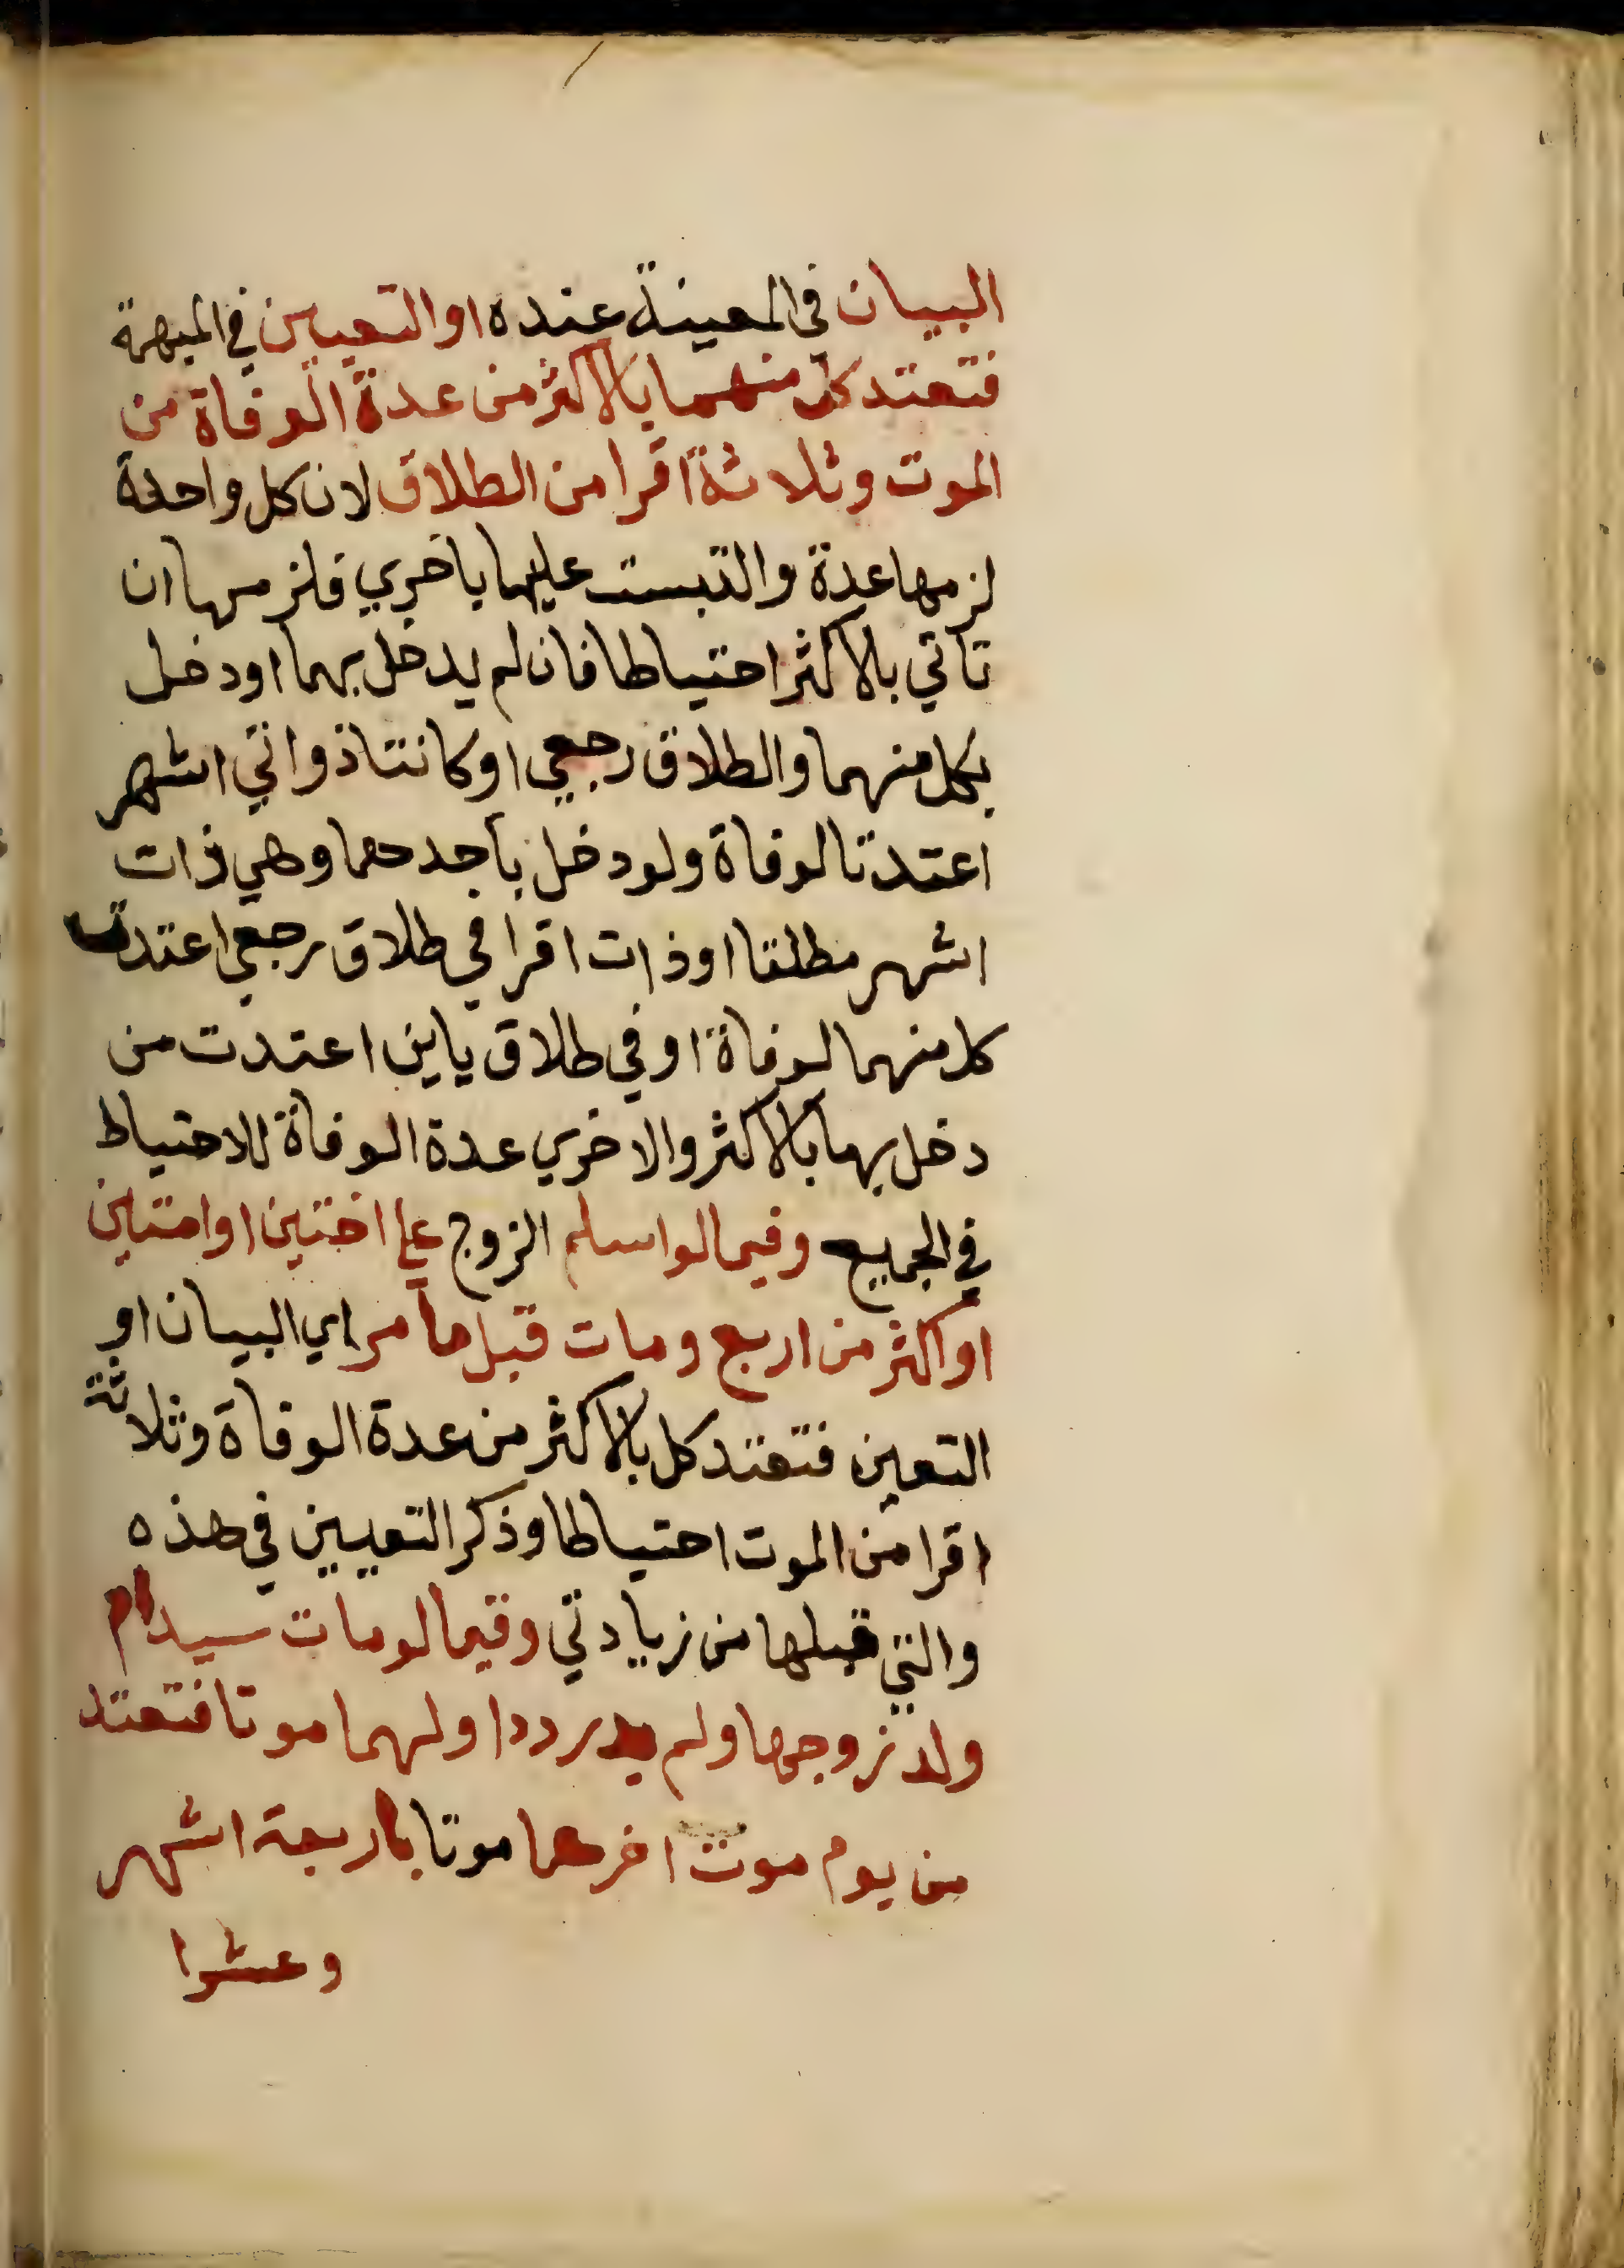 البيان في المعينة عنده او التعيين في المبهمة
فتعتد كل منهما بالاكثر من عدة الوفاة من
الموت وثلاثة اقرا من الطلاق لان كل واحدة
لزمها عدة والتبست عليها باخري فلزمها ان
تاتي بالاكثر احتياطا فان لم يدخل بهما او دخل
بكل منهما والطلاق رجعي او كانتا ذواتي اشهر
اعتدتا لوفاة ولو دخل باحدهما وهي ذات
اشهر مطلقا او ذات اقرا في طلاق رجعي اعتدت
كل منهما لوفاة او في طلاق باين اعتدت من
دخل بها بالاكثر والاخري عدة الوفاة للاحتياط
في الجميع وفيما لو اسلم الزوج علي اختين او امتين
او اكثر من اربع ومات قبل ما مر اي البيان او
التعين فتعتد كل بالاكثر من عدة الوفاة وثلاثة
اقرا من الموت احتياطا وذكر التعيين في هذه
والتي قبلها من زيادتي وفيما لو مات سيد ام
ولد زوجها ولم يدر ددا ولهما موتا فتعتد
من يوم موت اخرهما موتا باربعة اشهر
وعشرا